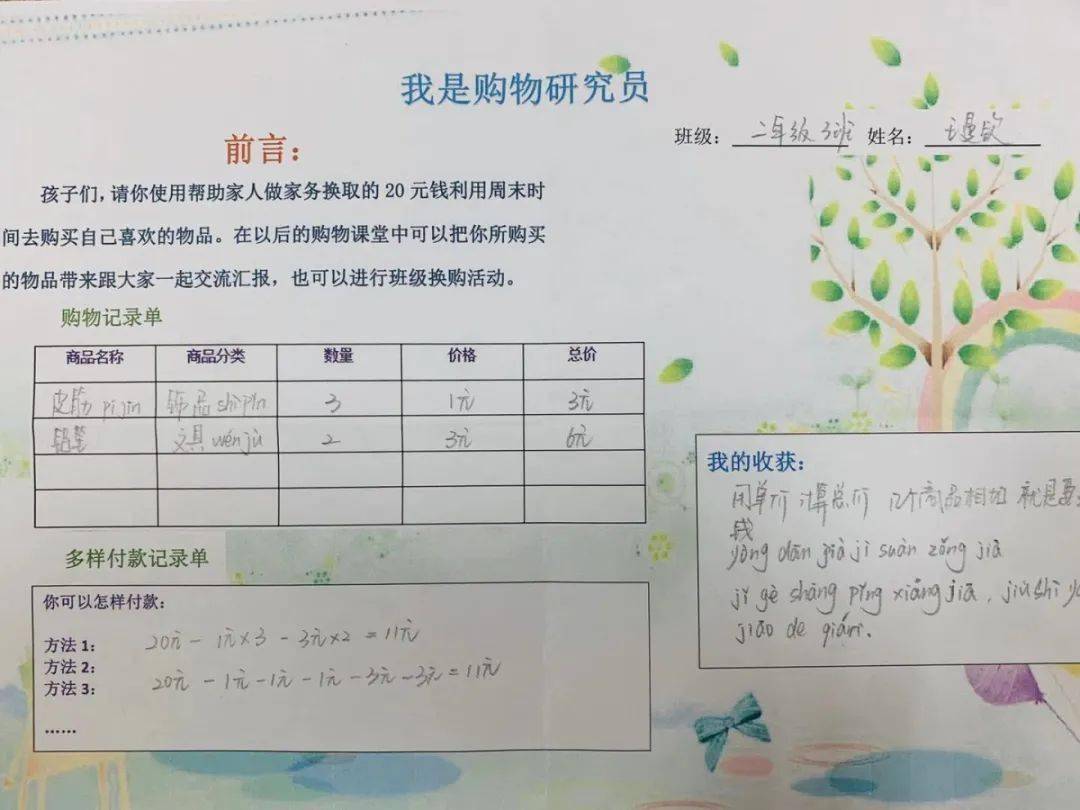 我是购物研究员
班级： 二年级3班 姓名：
前言：
孩子们，请你使用帮助家人做家务换取的 20 元钱利用周末时
间去购买自己喜欢的物品。在以后的购物课堂中可以把你所购买
的物品带来跟大家一起交流汇报，也可以进行班级换购活动。
购物记录单
商品名称 商品分类 数量 价格 总价
皮筋 pí jīn 饰品 shì pǐn 3 1元 3元
铅笔 文具 wén jù 2 3元 6元
多样付款记录单
你可以怎样付款：
方法 1： 20元 - 1元×3 - 3元×2 = 11元
方法 2： 20元 - 1元 - 1元 - 1元 - 3元 - 3元 = 11元
方法 3：
……
我的收获：
用单价 计算总价 几个商品相加 就是要
钱
yòng dān jià jì suàn zǒng jià
jǐ gè shāng pǐng xiāng jiā , jiù shì
jiāo de qián.